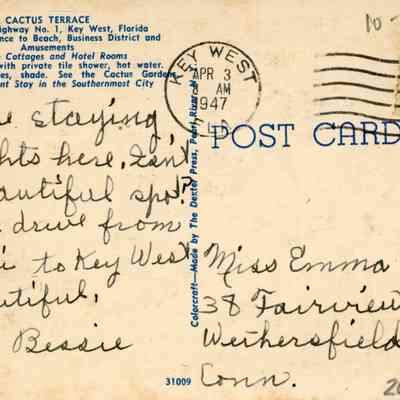 CACTUS TERRACE
ighway No. 1, Key West, Florida
nce to Beach, Business District and
Amusements
Cottages and Hotel Rooms
with private tile shower, hot water.
es, shade. See the Cactus Garden
nt Stay in the Southernmost City
KEY WEST
APR 3
AM
1947
FLA.
10-
POST CARD
e staying
ghts here, Isn't
eautiful spot?
drive from
i to Key West
utiful,
Bessie
Colorcraft—Made by The Dexter Press, Pearl River, N.
Miss Emma
38 Fairview
Wethersfield
Conn.
31009
20